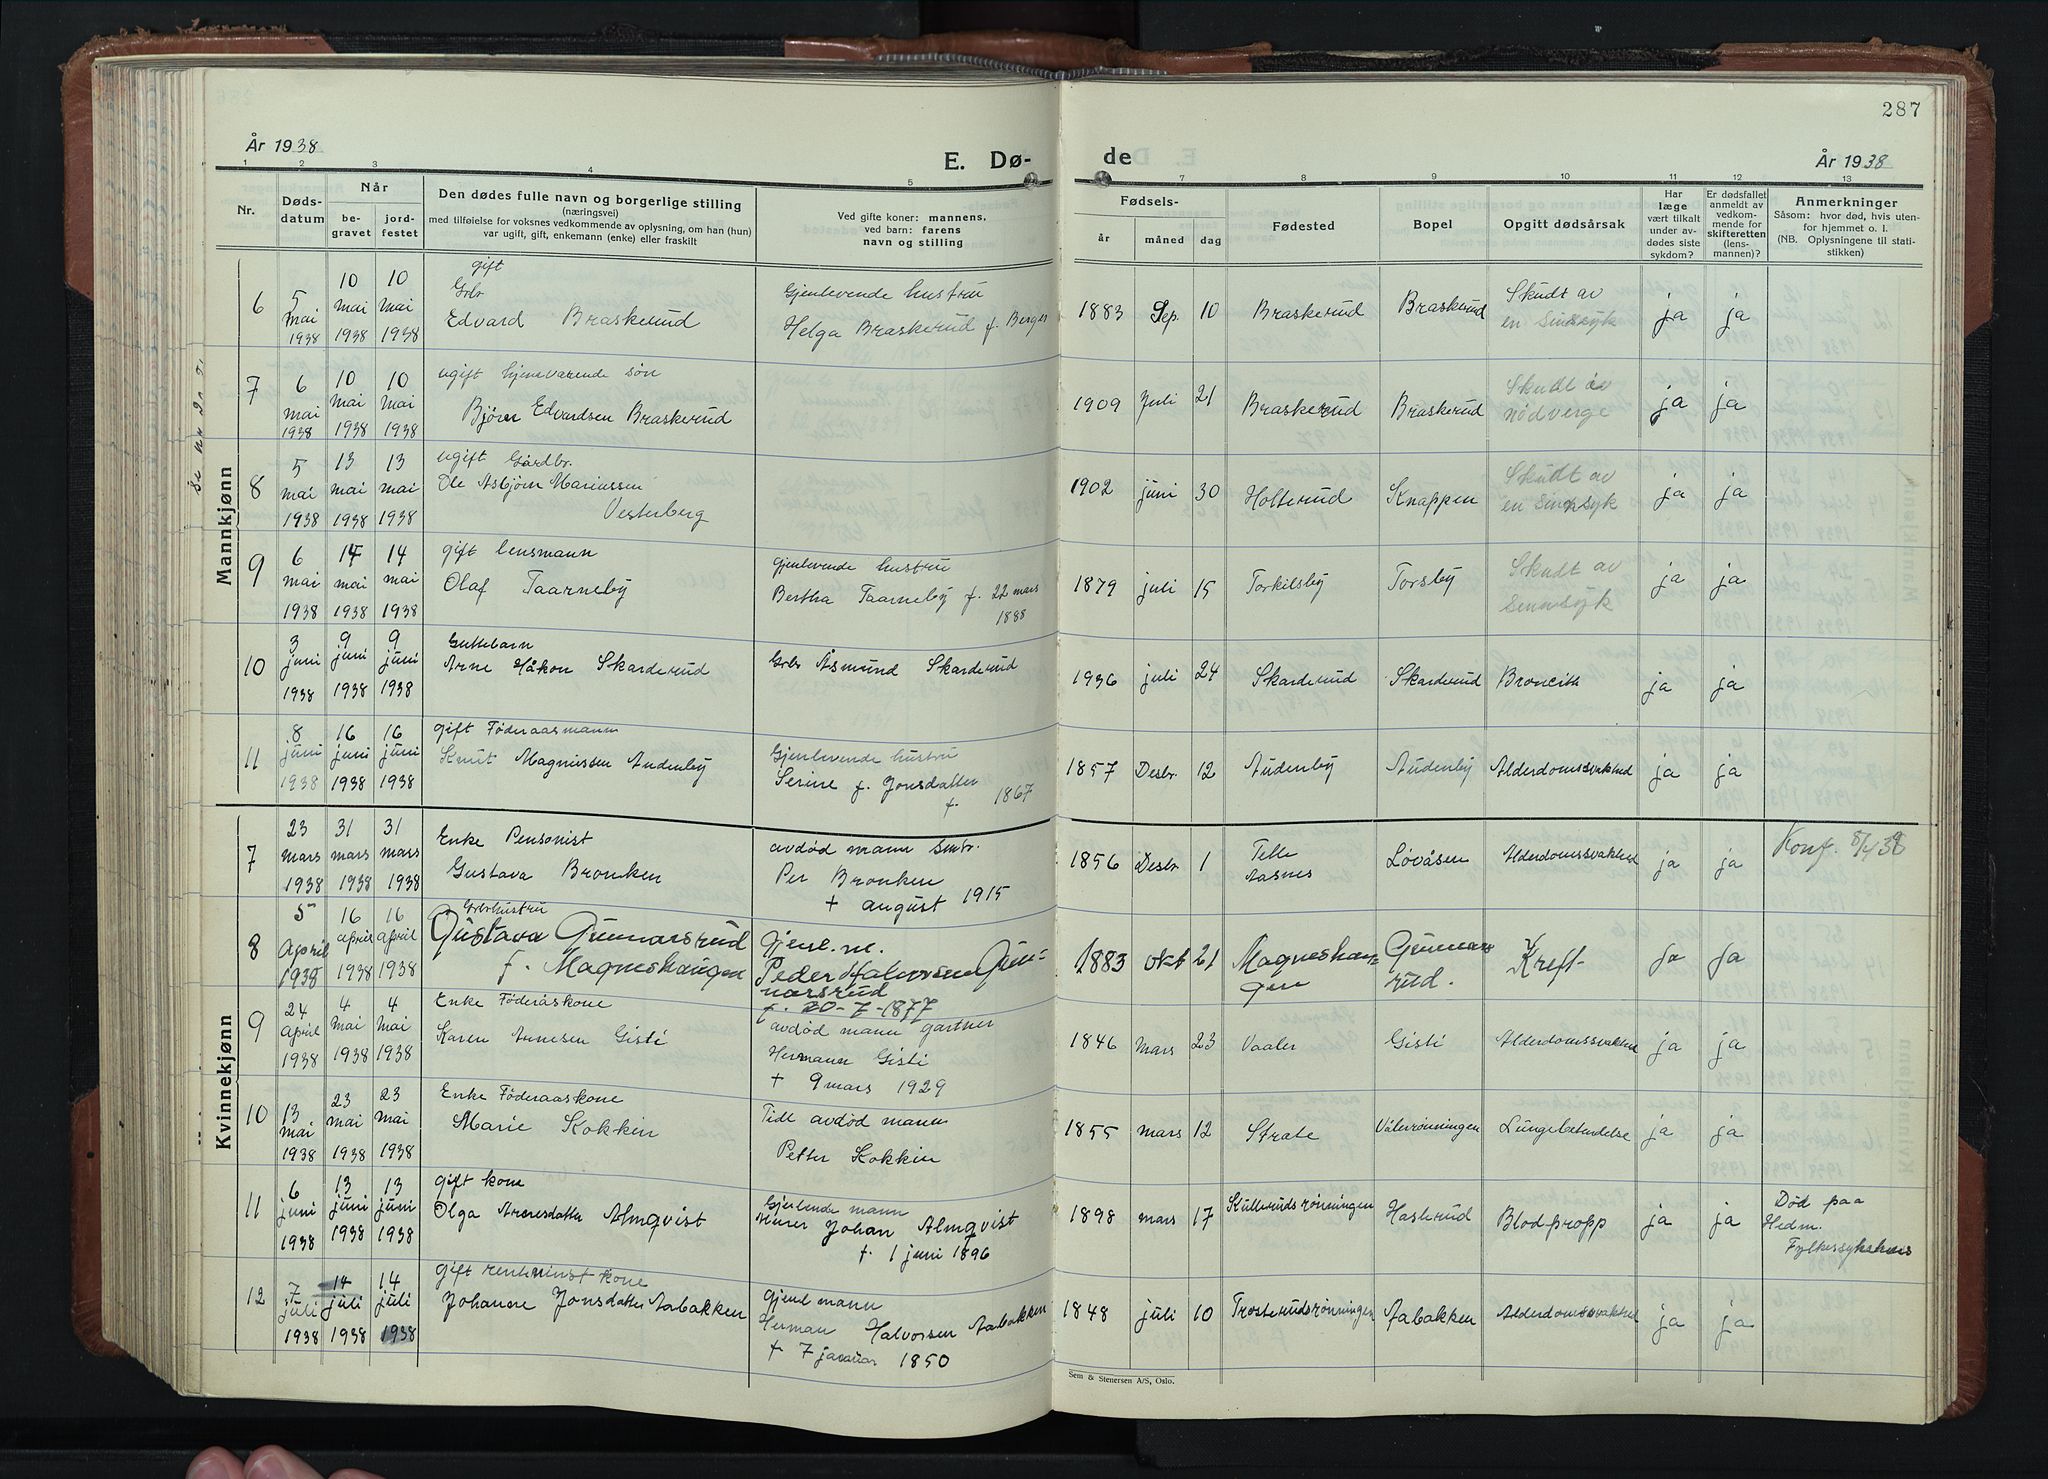 287
År 1938
E. Dø-
de
År 1938
1 2 3 4 5 7 8 9 10 11 12 13
Nr.
Døds-
datum
Når
be-
gravet
jord-
festet
Den dødes fulle navn og borgerlige stilling
(næringsvei)
med tilføielse for voksnes vedkommende av oplysning, om han (hun)
var ugift, gift, enkemann (enke) eller fraskilt
Ved gifte koner: mannens,
ved barn: farens
navn og stilling
Fødsels-
år måned dag
Fødested
Bopel
Opgitt dødsårsak
Har
læge
vært tilkalt
under av-
dødes siste
sykdom?
Er dødsfallet
anmeldt av
vedkom-
mende for
skifteretten
(lens-
mannen)?
Anmerkninger
Såsom: hvor død, hvis uten-
for hjemmet o. l.
(NB. Oplysningene til stati-
stikken)
Mannkjønn
6
5 mai 1938
10 mai 1938
10 mai 1938
gift
Grbr
Edvard Braskerud
Gjenlevende hustru
Helga Braskerud f. Berger
1883 Sep. 10 Braskerud Braskerud
Skudt av
en Sinnsyk
ja ja
7
6 mai 1938
10 mai 1938
10 mai 1938
ugift hjemværende søn
Bjørn Edvardsen Braskerud
1909 Juli 21 Braskerud Braskerud
Skudt av
nødverge
ja ja
8
5 mai 1938
13 mai 1938
13 mai 1938
ugift Gårdbr.
Ole Asbjørn Mariussen
Vesterberg
1902 juni 30 Holterud Knappen
Skudt av
en Sinnsyk
ja ja
9
6 mai 1938
14 mai 1938
14 mai 1938
gift lensmann
Olaf Taarneby
gjenlevende hustru
Bertha Taarneby f. 22 mars
1888
1879 juli 15 Torkilsby Torsby
Skudt av
Sinnsyk
ja ja
10
3 juni 1938
9 juni 1938
9 juni 1938
Guttebarn
Arne Håkon Skarderud
Grbr Åsmund Skarderud
1936 juli 24 Skarderud Skarderud Broncith
ja ja
11
8 juni 1938
16 juni 1938
16 juni 1938
gift Føderaasmann
Knut Magnussen Audenby
Gjenlevende hustru
Serine f. Jonsdatter
f. 1867
1857 Desbr. 12 Audenby Audenby Alderdomssvakhed
ja ja
Kvinnekjønn
7
23 mars 1938
31 mars 1938
31 mars 1938
Enke Pensonist
Gustava Bronken
avdød mann Smbr.
Per Bronken
+ august 1915
1856 Desbr 1
Aasnes
Løvåsen Alderdomssvakhed
ja ja
Konf. 8/4 38
8
5 April 1938
16 april 1938
16 april 1938
Grbrhustru
Gustava Gunnarsrud
f. Magneshaugen
Gjenl. m.
Peder Halvorsen Gun-
narsrud
f. 20-7-1877
1883 okt 21
Magneshau-
gen
Gunnars
rud.
Kreft
ja ja
9
24 april 1938
4 mai 1938
4 mai 1938
Enke Føderåskone
Karen Arnesen Gisti
avdød mann gartner
Hermann Gisti
+ 9 mars 1929
1846 mars 23 Vaaler Gisti Alderdomssvakhed
ja ja
10
13 mai 1938
23 mai 1938
23 mai 1938
Enke Føderaaskone
Marie Kokkin
Tidl avdød mann
Petter Kokkin
1855 mars 12 Strate Vålerrønningen Lungebetendelse
ja ja
11
6 juni 1938
13 juni 1938
13 juni 1938
gift kone
Olga Arnesdatter Almqvist
Gjenlende mann
Murer Johan Almqvist
f. 1 juni 1896
1898 mars 17 Kullerudsrønningen Haslerud Blodpropp
ja ja
Død paa
Hedm.
Fylkessykehus
12
7 juli 1938
14 juli 1938
14 juli 1938
gift renteninst kone
Johanne Jonsdatter Aabakken
Gjenl mann
Herman Halvorsen Aabakken
f 7 januar 1850
1848 juli 10 Trosterudsrønningen Aabakken Alderdomssvakhed
ja ja
Sem & Stenersen A/S, Oslo.